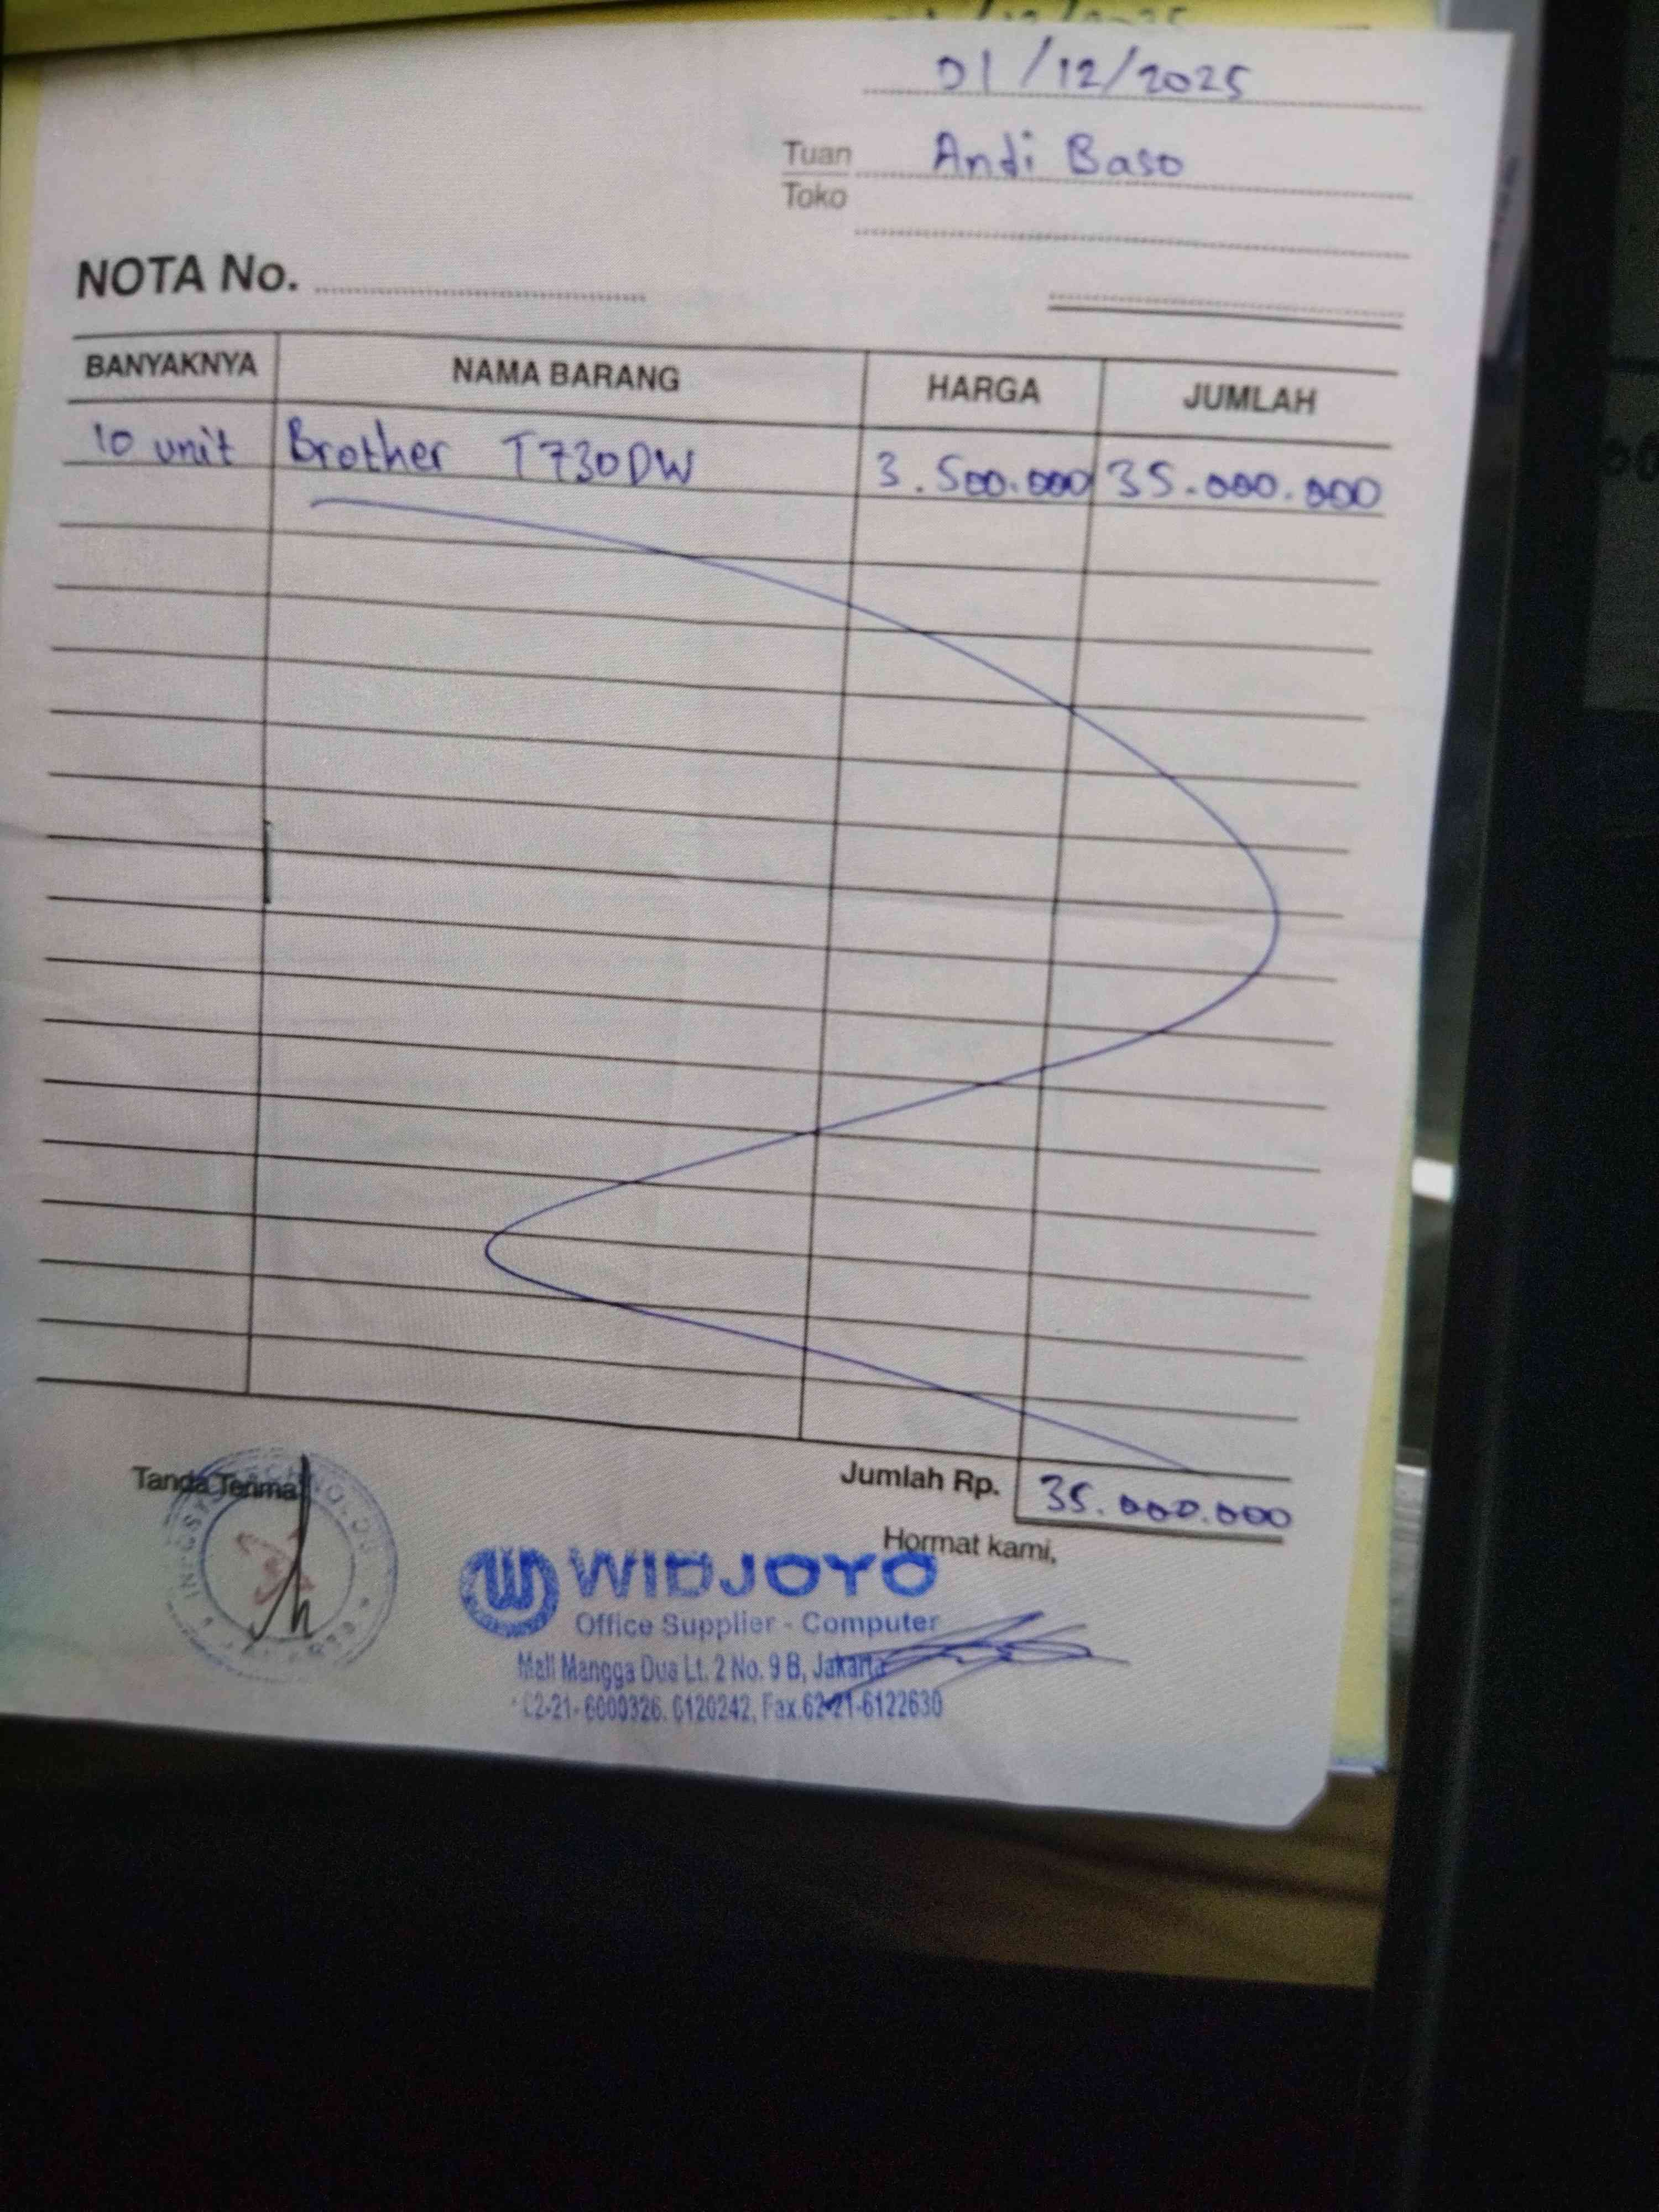 01/12/2025
Tuan Andi Baso
Toko
NOTA No.
BANYAKNYA NAMA BARANG HARGA JUMLAH
10 unit Brother T730DW 3.500.000 35.000.000
Jumlah Rp. 35.000.000
Tanda Terima
Hormat kami,
WIDJOYO
Office Supplier - Computer
Mall Mangga Dua Lt. 2 No. 9 B, Jakarta
62-21- 6000326. 6120242, Fax.62-21-6122630